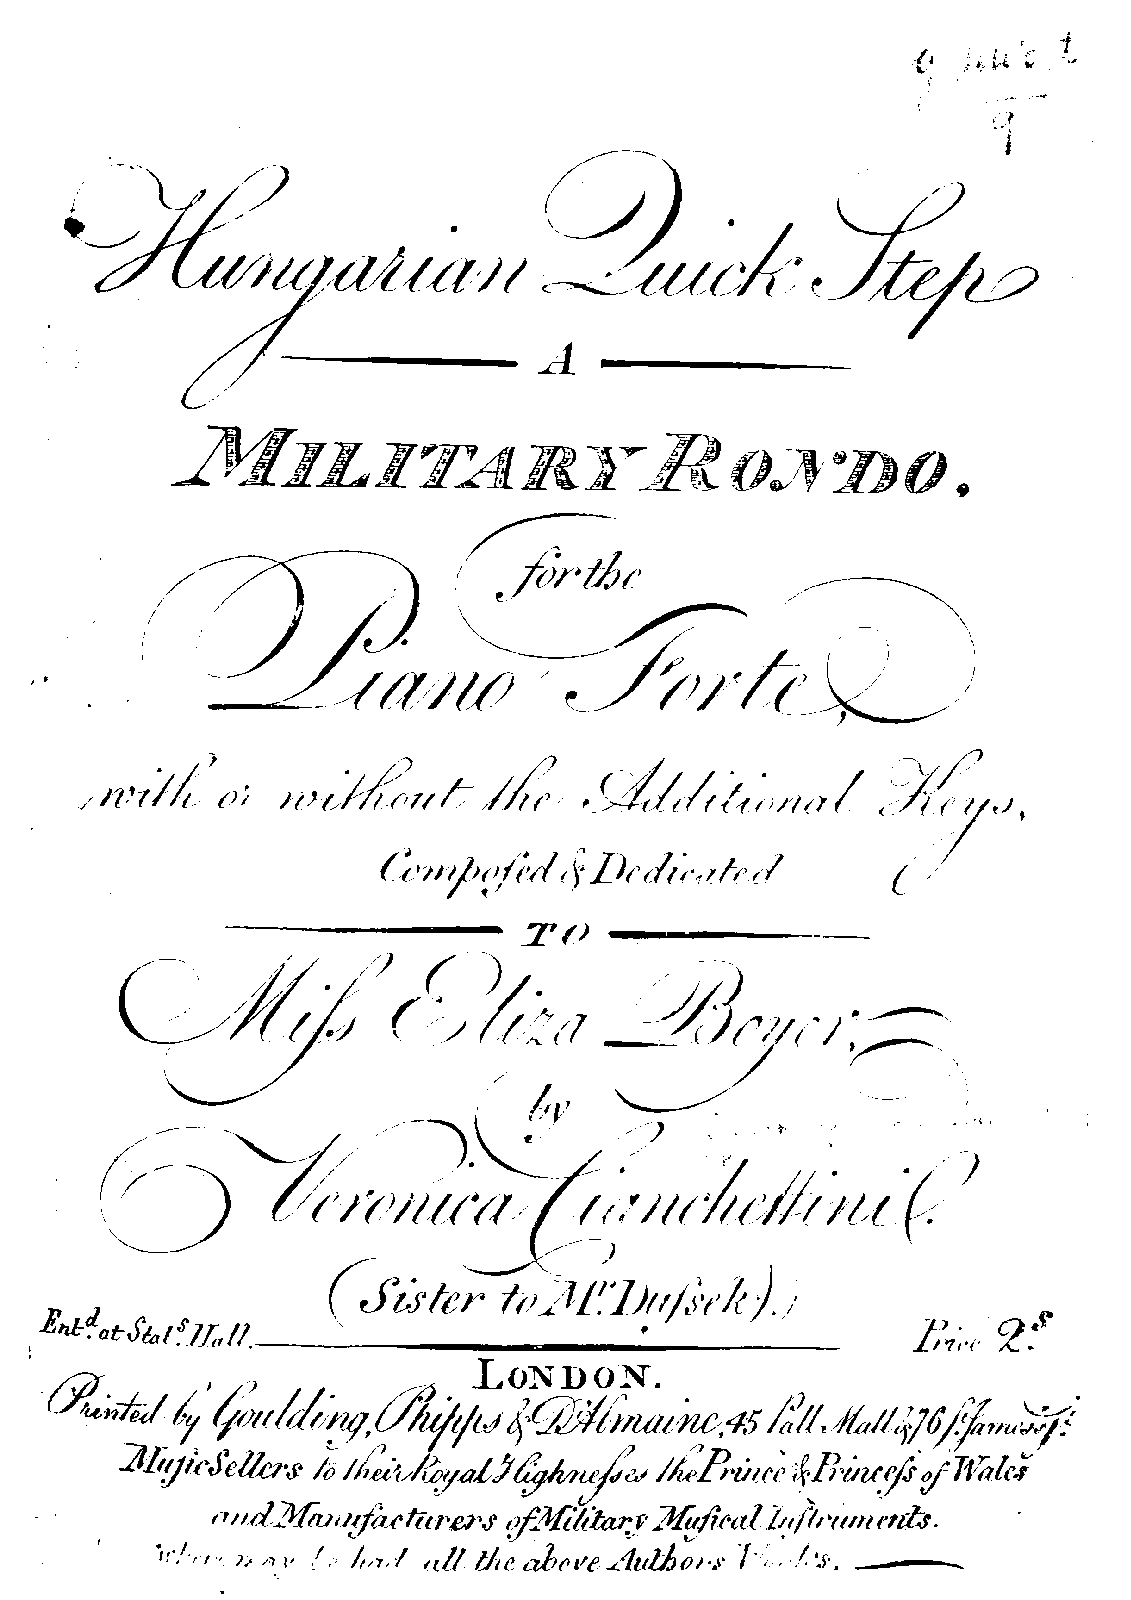 9
Hungarian Quick Step
A
MILITARY RONDO.
for the
Piano Forte,
with or without the Additional Keys,
Compoſed & Dedicated
TO
Miſs Eliza Boyer,
by
Veronica Cianchettini
(Sister to Mr. Duſsek).
Entd. at Stats. Hall.
Price 2.s
LONDON.
Printed by Goulding, Phipps & D'Almaine, 45 Pall Mall & 76 St. James's St.
Muſic Sellers to their Royal Highneſses the Prince & Princeſs of Wales
and Manufacturers of Military Muſical Inſtruments.
Where may be had all the above Authors Works.